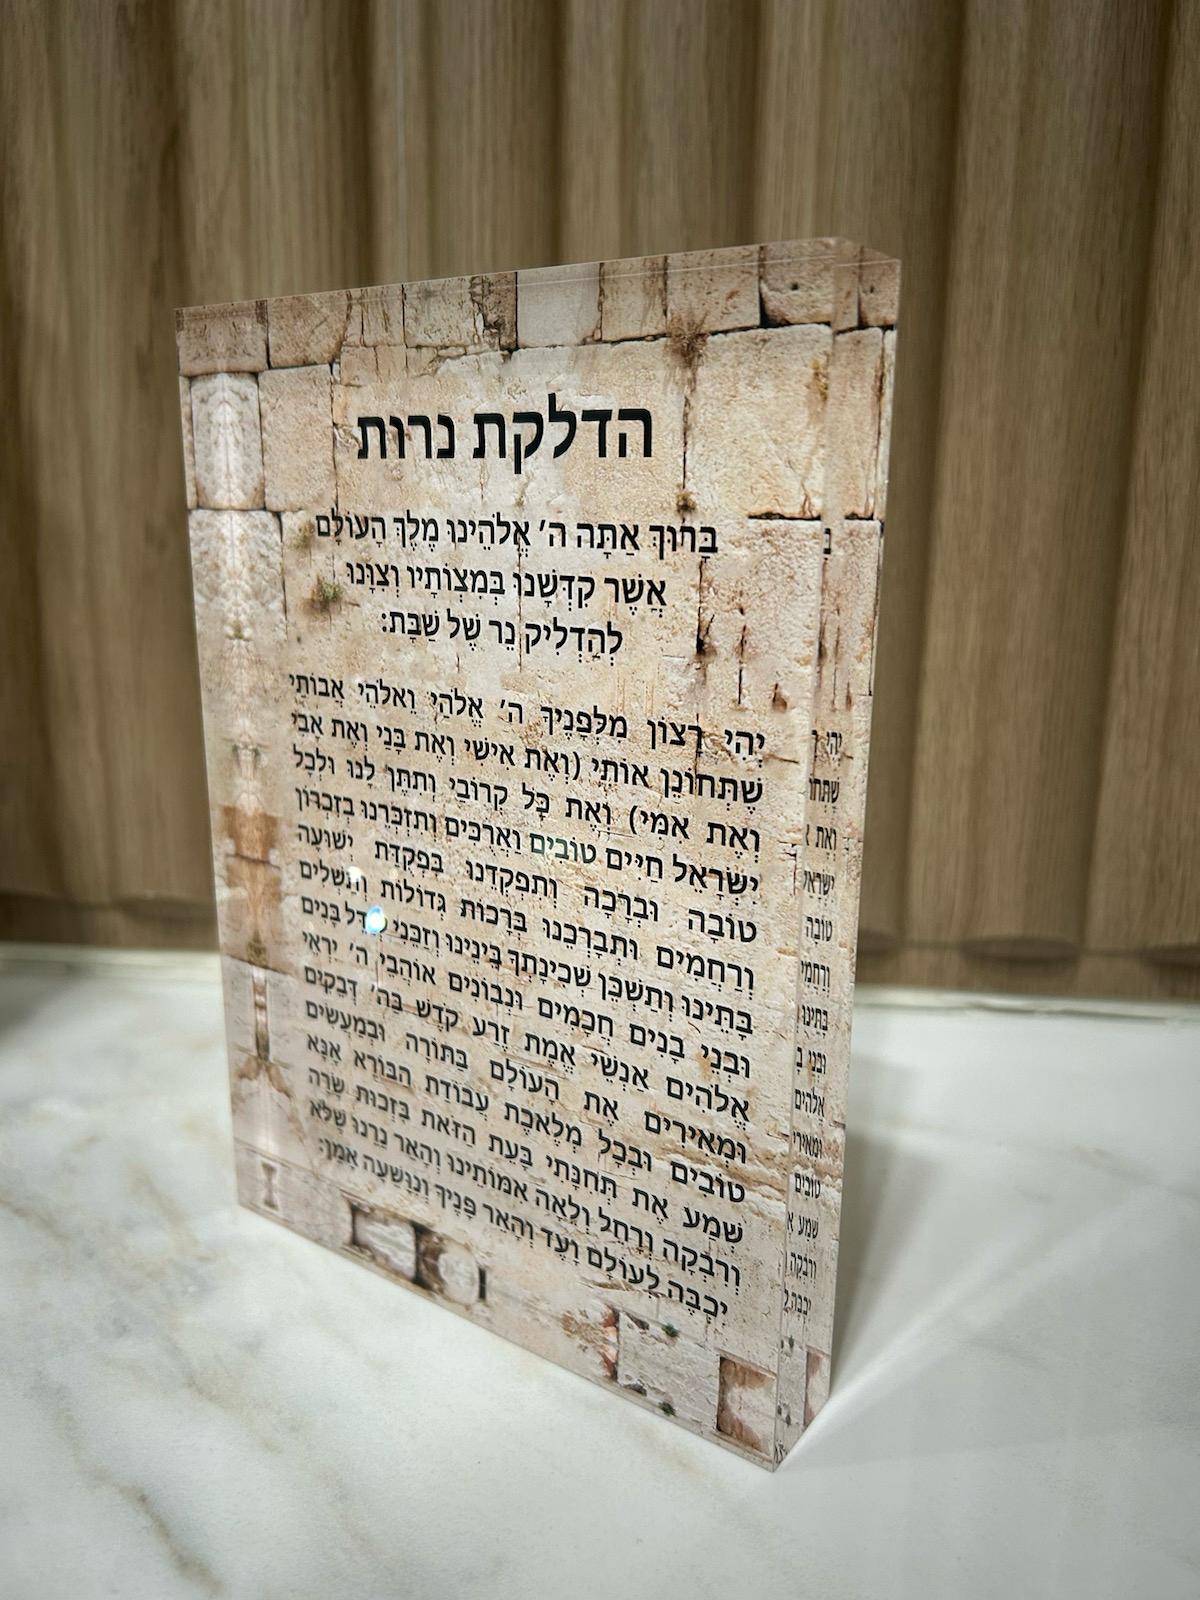 הדלקת נרות
בָּרוּךְ אַתָּה ה' אֱלֹהֵינוּ מֶלֶךְ הָעוֹלָם
אֲשֶׁר קִדְּשָׁנוּ בְּמִצְוֹתָיו וְצִוָּנוּ
לְהַדְלִיק נֵר שֶׁל שַׁבָּת:
יְהִי רָצוֹן מִלְּפָנֶיךָ ה' אֱלֹהַי וֵאלֹהֵי אֲבוֹתַי
שֶׁתְּחוֹנֵן אוֹתִי (וְאֶת אִישִׁי וְאֶת בָּנַי וְאֶת אָבִי
וְאֶת אִמִּי) וְאֶת כָּל קְרוֹבַי וְתִתֶּן לָנוּ וּלְכָל
יִשְׂרָאֵל חַיִּים טוֹבִים וַאֲרֻכִּים וְתִזְכְּרֵנוּ בְּזִכְרוֹן
טוֹבָה וּבְרָכָה וְתִפְקְדֵנוּ בִּפְקֻדַּת יְשׁוּעָה
וְרַחֲמִים וּתְבָרְכֵנוּ בְּרָכוֹת גְּדוֹלוֹת וְתַשְׁלִים
בָּתֵּינוּ וְתַשְׁכֵּן שְׁכִינָתְךָ בֵּינֵינוּ וְזַכֵּנִי לְגַדֵּל בָּנִים
וּבְנֵי בָנִים חֲכָמִים וּנְבוֹנִים אוֹהֲבֵי ה' יִרְאֵי
אֱלֹהִים אַנְשֵׁי אֱמֶת זֶרַע קֹדֶשׁ בַּה' דְּבֵקִים
וּמְאִירִים אֶת הָעוֹלָם בַּתּוֹרָה וּבְמַעֲשִׂים
טוֹבִים וּבְכָל מְלֶאכֶת עֲבוֹדַת הַבּוֹרֵא אָנָּא
שְׁמַע אֶת תְּחִנָּתִי בָּעֵת הַזֹּאת בִּזְכוּת שָׂרָה
וְרִבְקָה וְרָחֵל וְלֵאָה אִמּוֹתֵינוּ וְהָאֵר נֵרֵנוּ שֶׁלֹּא
יִכְבֶּה לְעוֹלָם וָעֶד וְהָאֵר פָּנֶיךָ וְנִוָּשֵׁעָה אָמֵן: